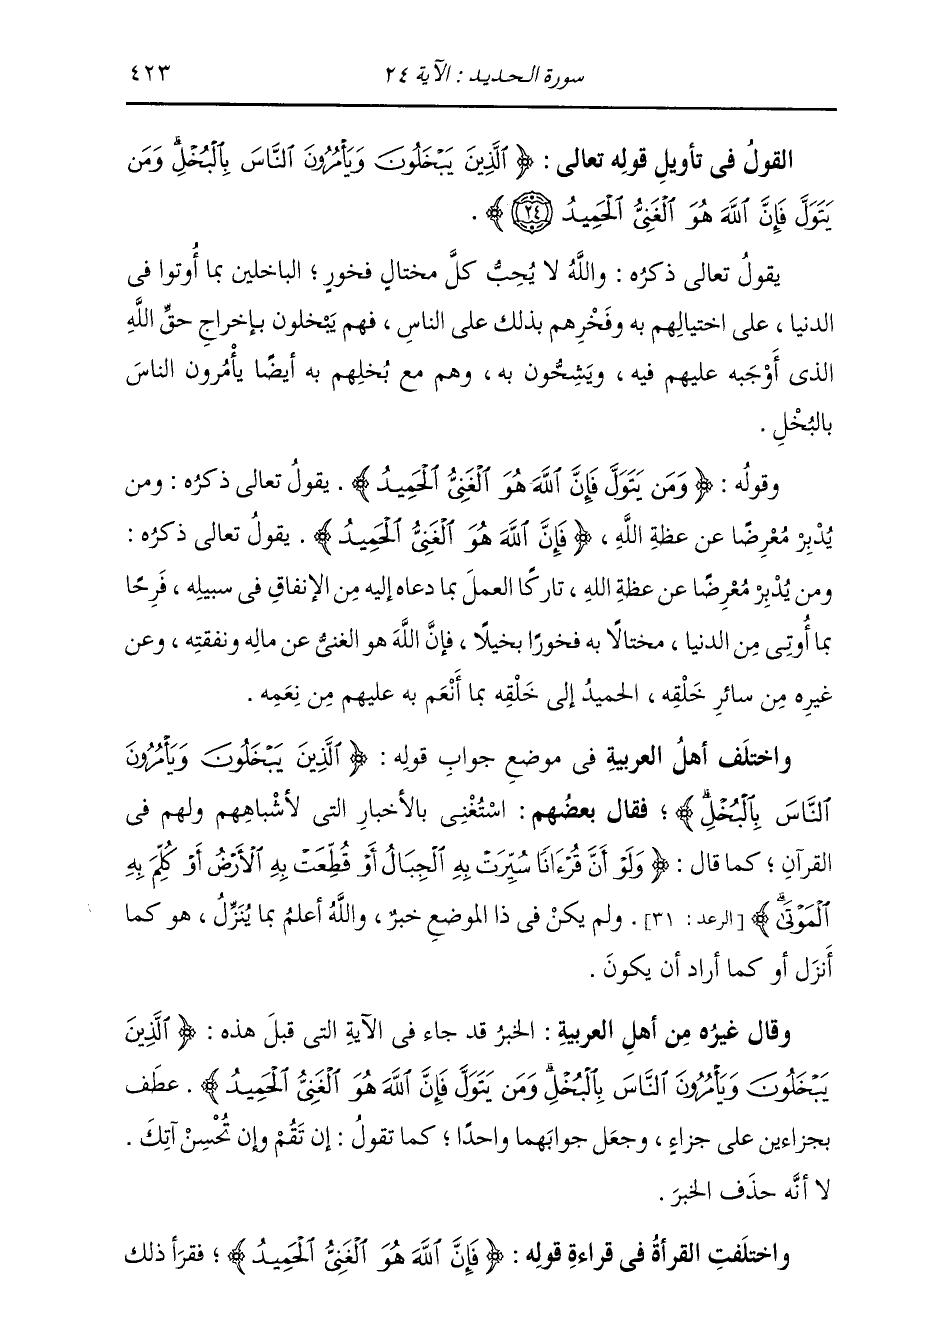 سورة الحديد : الآية ٢٤
٤٢٣
القولُ فى تأويلِ قولِه تعالى : ﴿ ٱلَّذِينَ يَبۡخَلُونَ وَيَأۡمُرُونَ ٱلنَّاسَ بِٱلۡبُخۡلِۗ وَمَن
يَتَوَلَّ فَإِنَّ ٱللَّهَ هُوَ ٱلۡغَنِىُّ ٱلۡحَمِيدُ ﴿٢٤﴾ ﴾ .
يقولُ تعالى ذكرُه : واللَّهُ لا يُحِبُّ كلَّ مختالٍ فخورٍ ؛ الباخلين بما أُوتوا فى
الدنيا ، على اختيالِهم به وفَخْرِهم بذلك على الناسِ ، فهم يَبْخلون بإخراجِ حقِّ اللَّهِ
الذى أَوْجَبه عليهم فيه ، ويَشِحُّون به ، وهم مع بُخلِهم به أيضًا يأْمُرون الناسَ
بالبُخْلِ .
وقولُه : ﴿ وَمَن يَتَوَلَّ فَإِنَّ ٱللَّهَ هُوَ ٱلۡغَنِىُّ ٱلۡحَمِيدُ ﴾ . يقولُ تعالى ذكرُه : ومن
يُدْبِرْ مُعْرِضًا عن عظةِ اللَّهِ ، ﴿ فَإِنَّ ٱللَّهَ هُوَ ٱلۡغَنِىُّ ٱلۡحَمِيدُ ﴾ . يقولُ تعالى ذكرُه :
ومن يُدْبِرْ مُعْرِضًا عن عظةِ اللهِ ، تاركًا العملَ بما دعاه إليه مِن الإنفاقِ فى سبيلِه ، فَرِحًا
بما أُوتِى مِن الدنيا ، مختالًا به فخورًا بخيلًا ، فإنَّ اللَّهَ هو الغنىُّ عن مالِه ونفقتِه ، وعن
غيرِه مِن سائرِ خَلْقِه ، الحميدُ إلى خَلْقِه بما أَنْعَم به عليهم مِن نِعَمِه .
واختلَف أهلُ العربيةِ فى موضعِ جوابِ قولِه : ﴿ ٱلَّذِينَ يَبۡخَلُونَ وَيَأۡمُرُونَ
ٱلنَّاسَ بِٱلۡبُخۡلِۗ ﴾ ؛ فقال بعضُهم : اسْتُغْنِى بالأخبارِ التى لأشْباهِهم ولهم فى
القرآنِ ؛ كما قال : ﴿ وَلَوۡ أَنَّ قُرۡءَانًا سُيِّرَتۡ بِهِ ٱلۡجِبَالُ أَوۡ قُطِّعَتۡ بِهِ ٱلۡأَرۡضُ أَوۡ كُلِّمَ بِهِ
ٱلۡمَوۡتَىٰۗ ﴾ [الرعد : ٣١] . ولم يكنْ فى ذا الموضعِ خبرٌ ، واللَّهُ أعلمُ بما يُنَزِّلُ ، هو كما
أَنزَل أو كما أراد أن يكونَ .
وقال غيرُه مِن أهلِ العربيةِ : الخبرُ قد جاء فى الآيةِ التى قبلَ هذه : ﴿ ٱلَّذِينَ
يَبۡخَلُونَ وَيَأۡمُرُونَ ٱلنَّاسَ بِٱلۡبُخۡلِۗ وَمَن يَتَوَلَّ فَإِنَّ ٱللَّهَ هُوَ ٱلۡغَنِىُّ ٱلۡحَمِيدُ ﴾ . عطَف
بجزاءين على جزاءٍ ، وجعَل جوابَهما واحدًا ؛ كما تقولُ : إن تَقُمْ وإن تُحْسِنْ آتِكَ .
لا أنَّه حذَف الخبرَ .
واختلَفتِ القرأةُ فى قراءةِ قولِه : ﴿ فَإِنَّ ٱللَّهَ هُوَ ٱلۡغَنِىُّ ٱلۡحَمِيدُ ﴾ ؛ فقرَأ ذلك